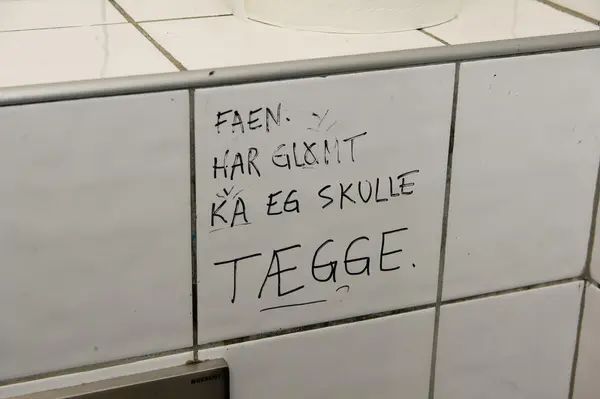 FAEN.
HAR GLØMT
KA EG SKULLE
TÆGGE.